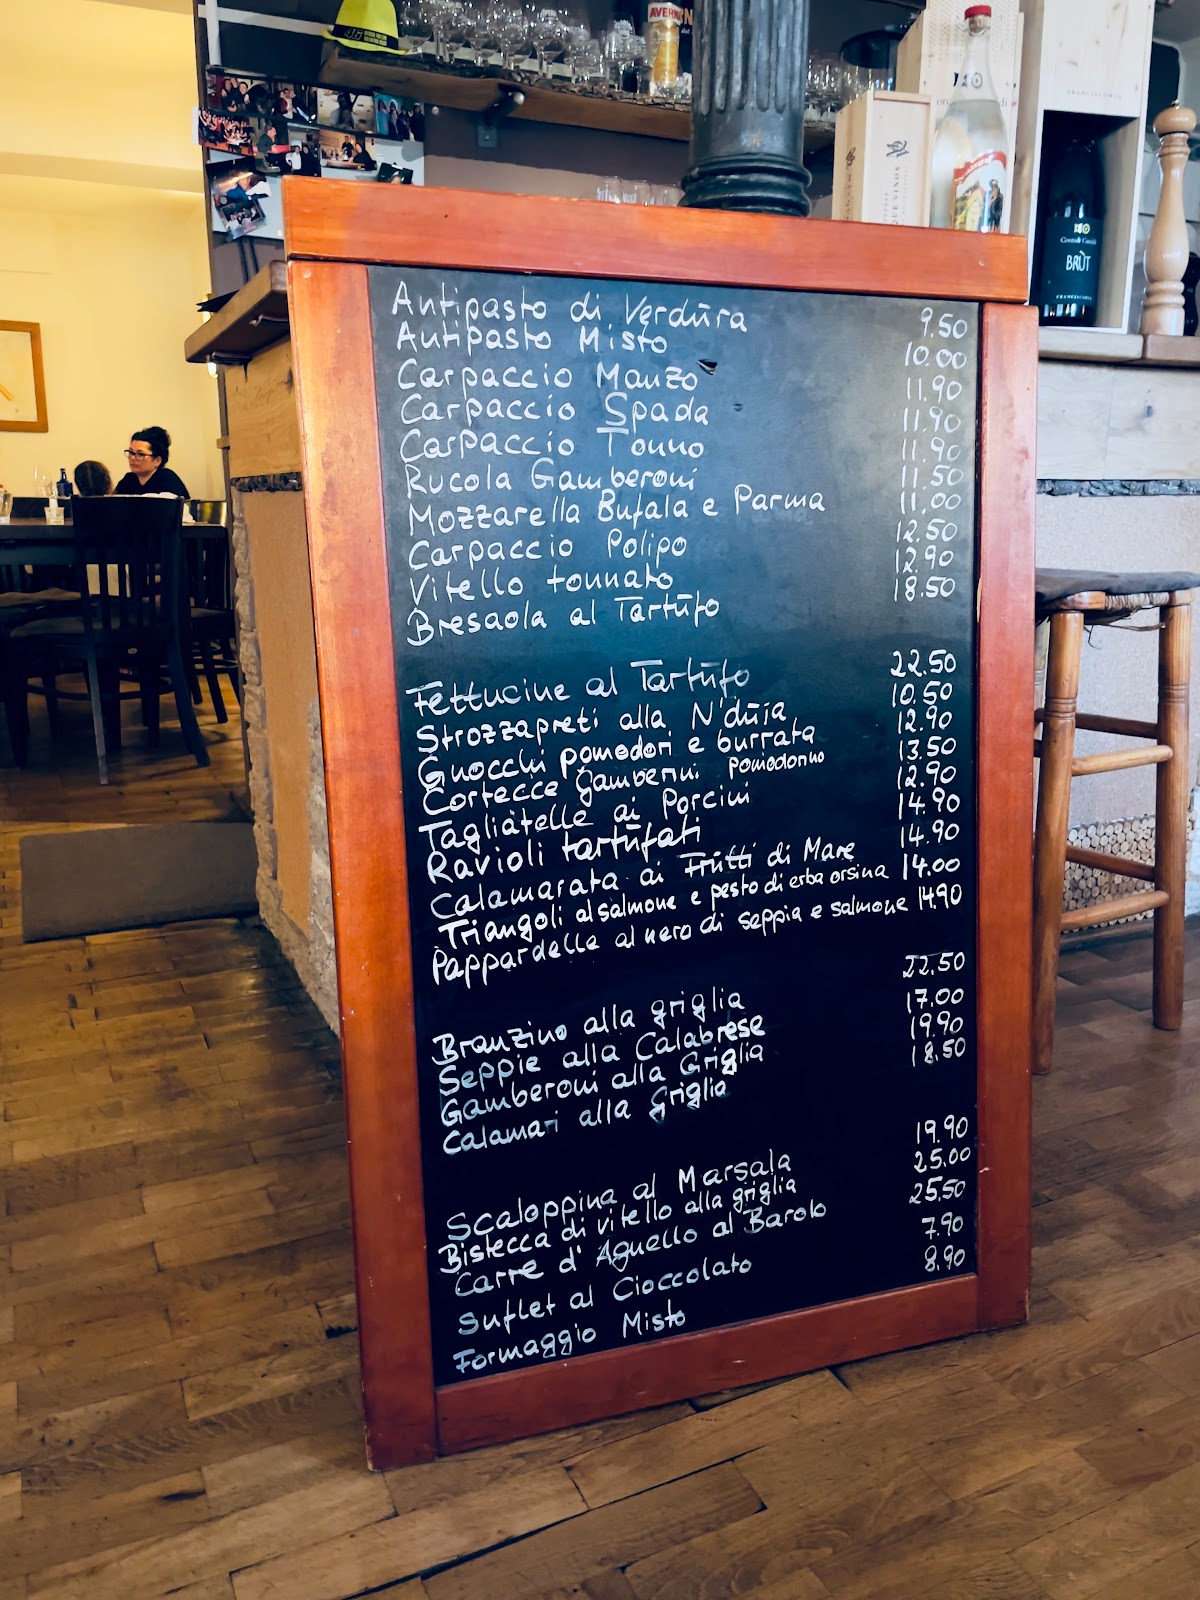 AVERN
46
BRÙT
FRANCIACORTA
Antipasto di Verdūra 9.50
Antipasto Misto 10.00
Carpaccio Manzo 11.90
Carpaccio Spada 11.90
Carpaccio Tonno 11.90
Rucola Gamberoni 11.50
Mozzarella Bufala e Parma 11.00
Carpaccio Polipo 12.50
Vitello tonnato 12.90
Bresaola al Tartūfo 18.50
Fettucine al Tartūfo 22.50
Strozzapreti alla N'dūja 10.50
Gnocchi pomodori e burrata 12.90
Cortecce Gamberni pomodorino 13.50
Tagliatelle ai Porcini 12.90
Ravioli tartūfati 14.90
Calamarata ai Frūtti di Mare 14.90
Triangoli al salmone e pesto di erba orsina 14.00
Pappardelle al nero di seppia e salmone 14.90
Branzino alla griglia 22.50
Seppie alla Calabrese 17.00
Gamberoni alla Griglia 19.90
Calamari alla Griglia 18.50
Scaloppina al Marsala 19.90
Bistecca di vitello alla griglia 25.00
Carre d' Agnello al Barolo 25.50
Suflet al Cioccolato 7.90
Formaggio Misto 8.90